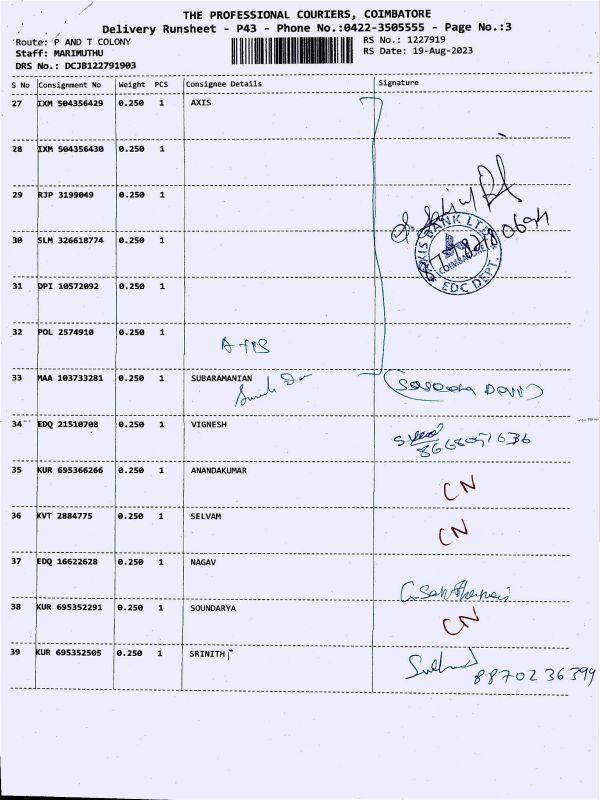 THE PROFESSIONAL COURIERS, COIMBATORE
Delivery Runsheet - P43 - Phone No.:0422-3505555 - Page No.:3
Route: P AND T COLONY RS No.: 1227919
Staff: MARIMUTHU RS Date: 19-Aug-2023
DRS No.: DCJB122791903
S No Consignment No Weight PCS Consignee Details Signature
27 IXM 504356429 0.250 1 AXIS
28 IXM 504356430 0.250 1
29 RJP 3199049 0.250 1
30 SLM 326618774 0.250 1
AXIS BANK LTD
COIMBATORE
EDC DEPT.
31 DPI 10572092 0.250 1
32 POL 2574910 0.250 1
33 MAA 103733281 0.250 1 SUBARAMANIAN
34 EDQ 21510708 0.250 1 VIGNESH
35 KUR 695366266 0.250 1 ANANDAKUMAR CN
36 KVT 2884775 0.250 1 SELVAM CN
37 EDQ 16622628 0.250 1 NAGAV
38 KUR 695352291 0.250 1 SOUNDARYA CN
39 KUR 695352505 0.250 1 SRINITH
8870236399